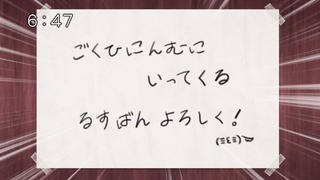 6:47
ごくひにんむに
いってくる
るすばん よろしく!
(ΞεΞ)